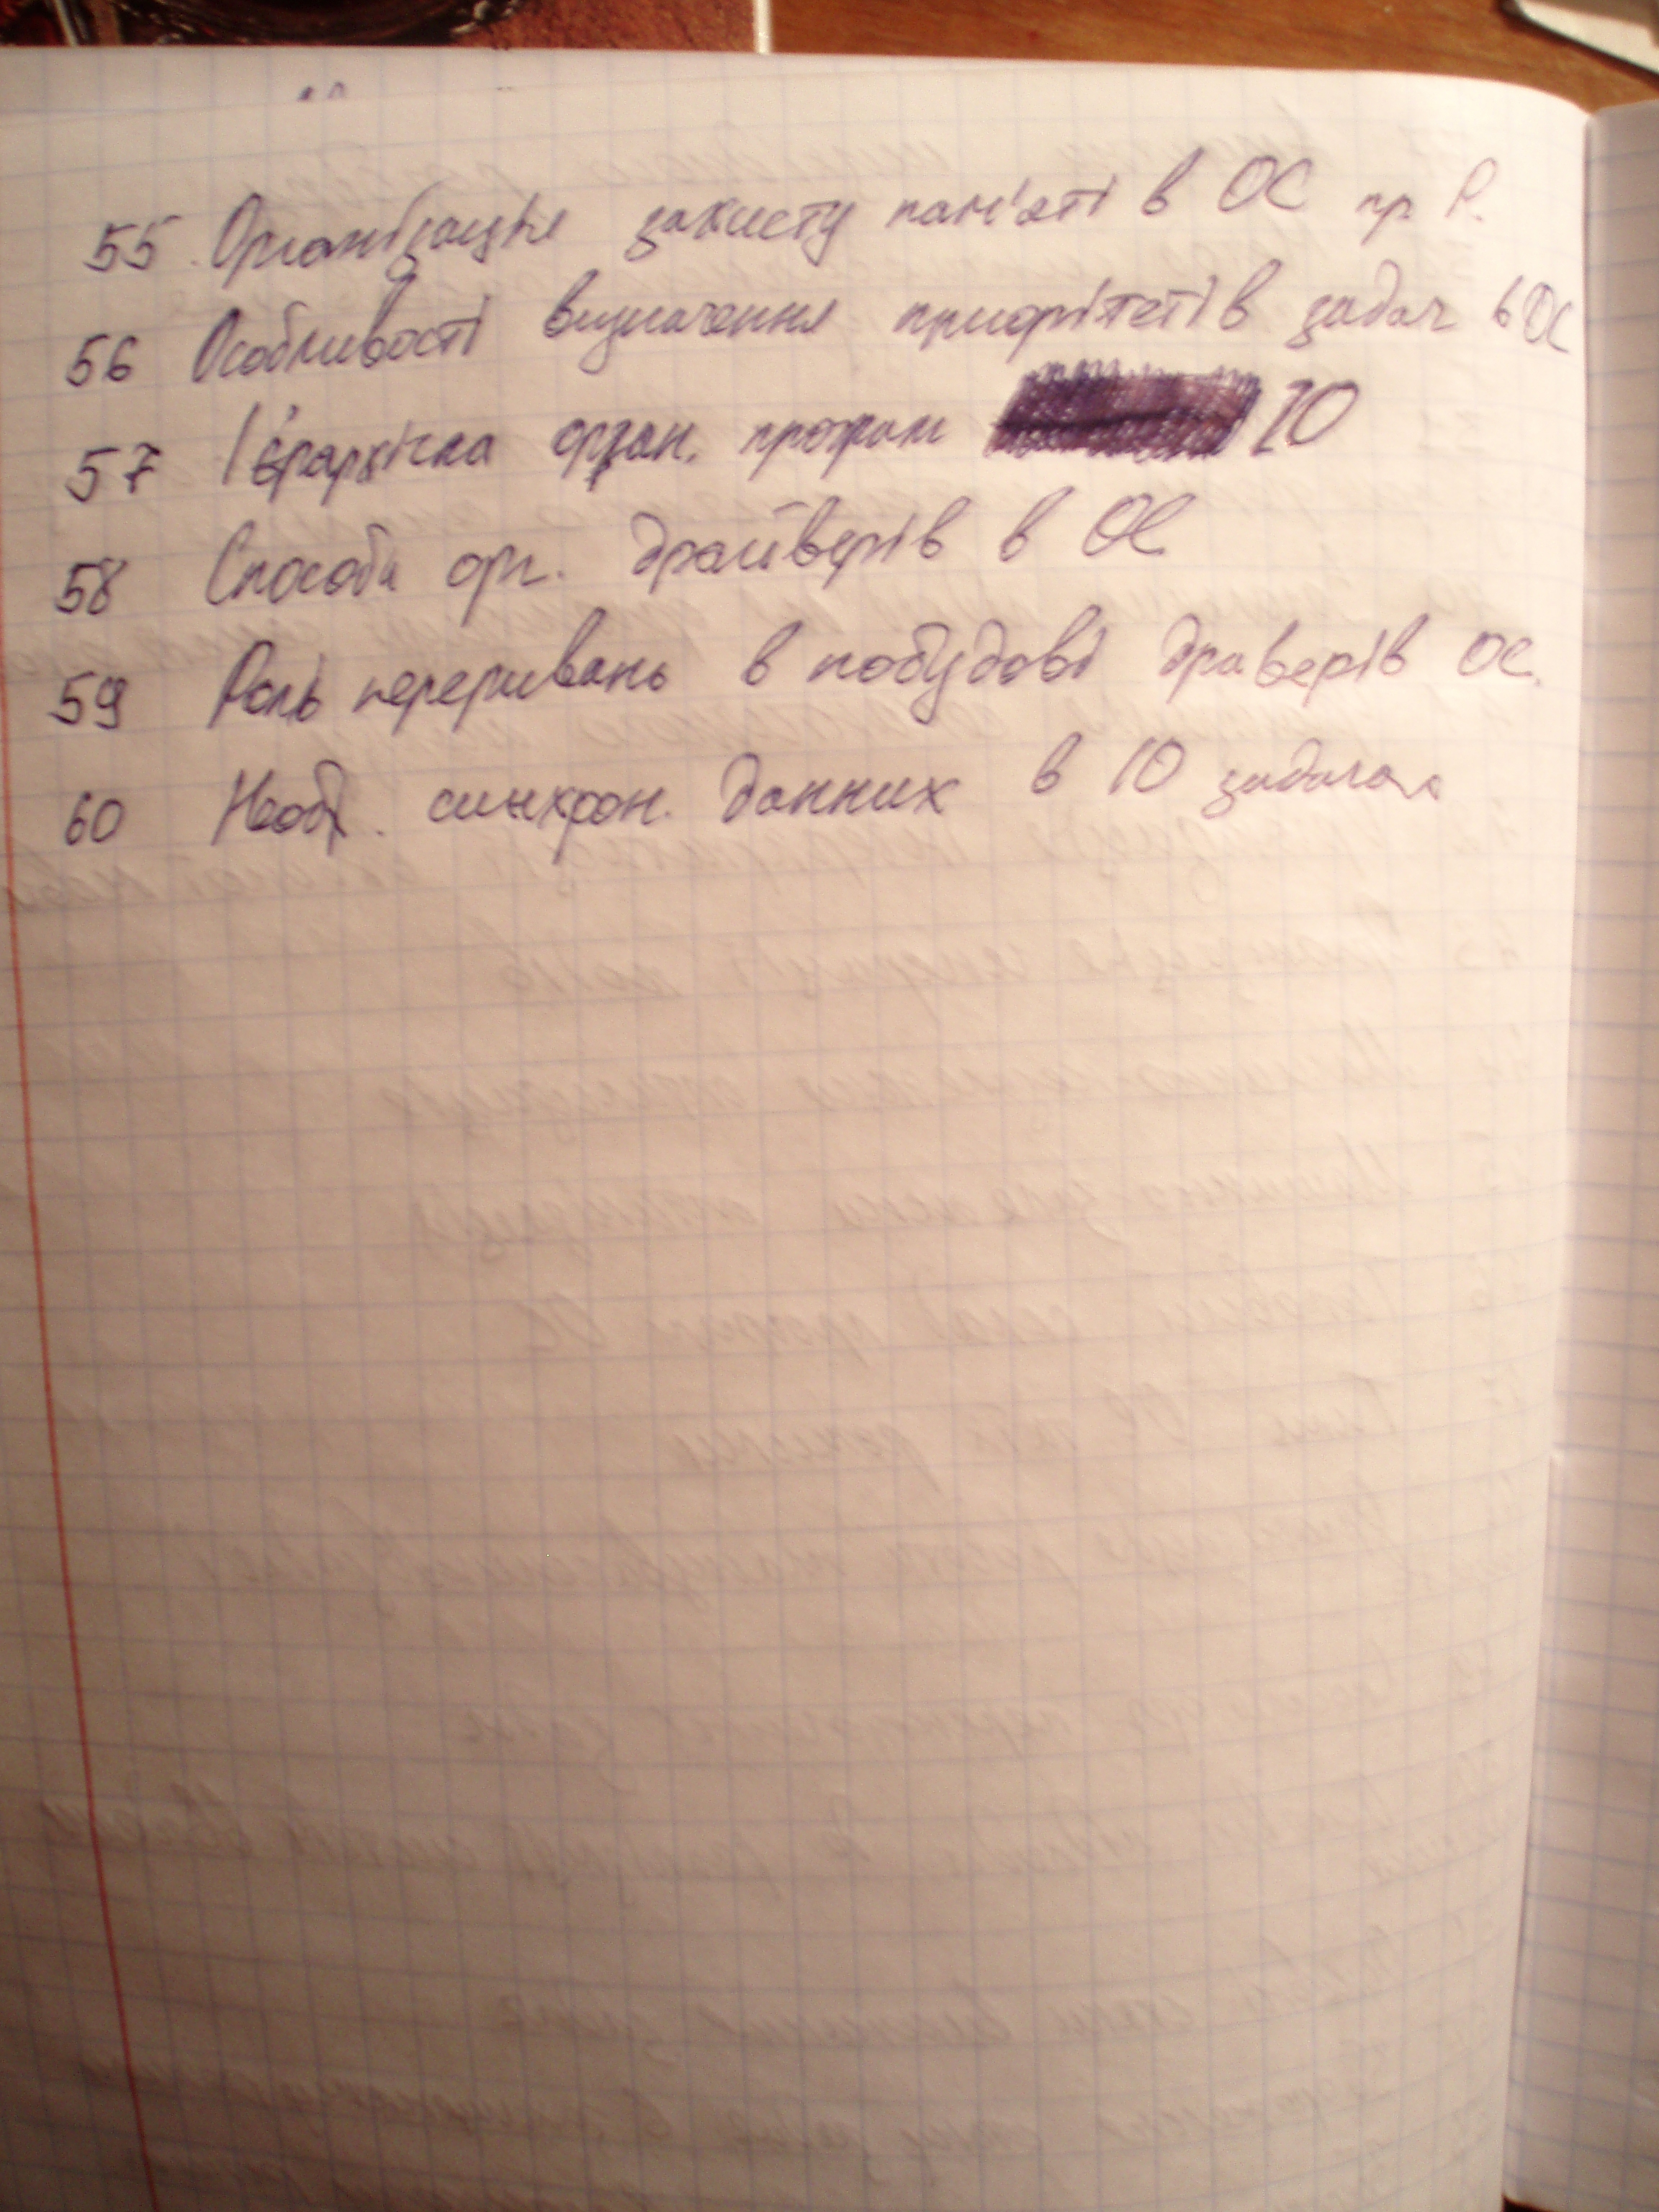 55. Організація захисту пам'яті в ОС пр Р.
56 Особливості визначення приорітетів задач в ОС
57 Ієрархічна орган. програм IO
58 Способи орг. драйверів в ОС
59 Роль переривань в побудові драверів ОС.
60 Необх. синхрон. данних в IO задачах